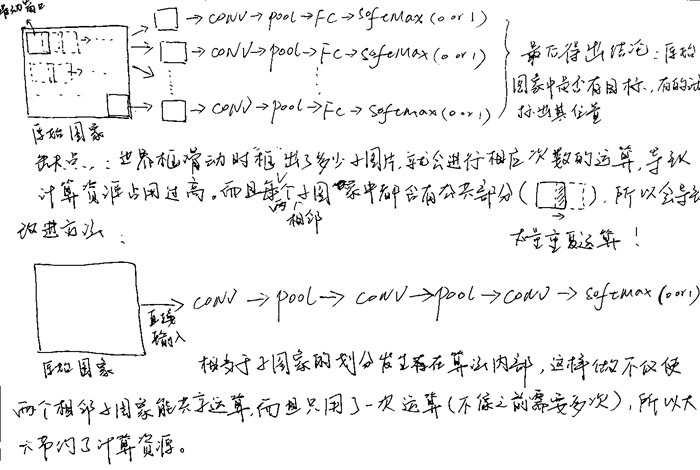 滑动窗口
→ CONV → pool → FC → softmax (0 or 1)
→ CONV → pool → FC → softmax (0 or 1)
→ CONV → pool → FC → softmax (0 or 1)
最后得出结论:原始
图象中是否有目标,有的话
标出其位置
原始图象
缺点:边界框滑动时“框”出了多少子图片,就会进行相应次数的运算,导致
计算资源占用过高。而且每两个相邻子图象中都含有公共部分( ),所以会导致
大量重复运算!
改进方法:
直接
输入
→ CONV → pool → CONV → pool → CONV → softmax (0 or 1)
原始图象
相当于子图象的划分发生在算法内部,这样做不仅使
两个相邻子图象能共享运算,而且只用了一次运算(不像之前需要多次),所以大
大节约了计算资源。